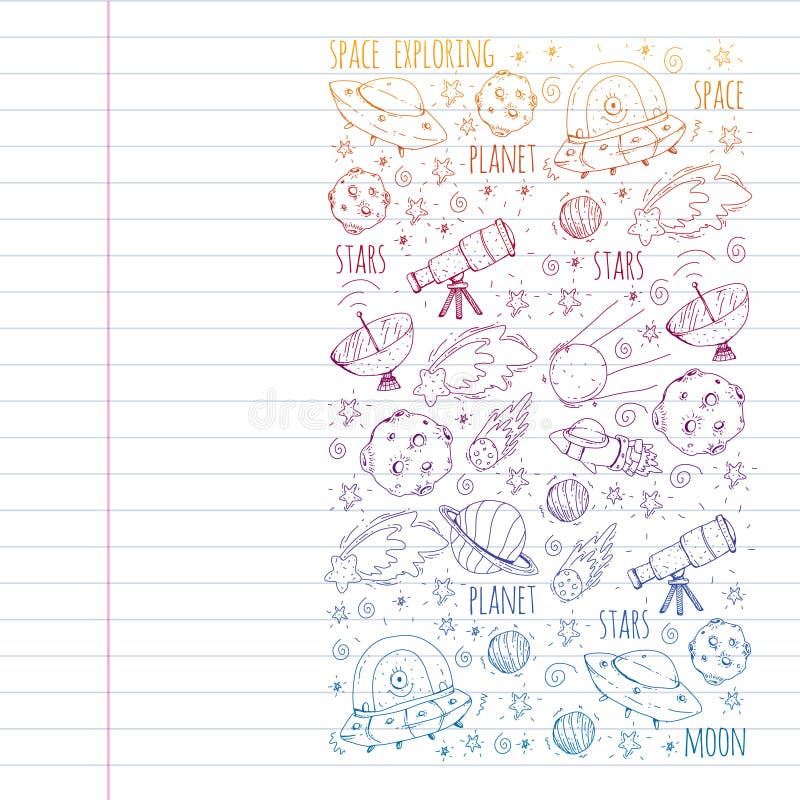 SPACE EXPLORING
SPACE
PLANET
STARS
STARS
dreamstime
PLANET
STARS
MOON